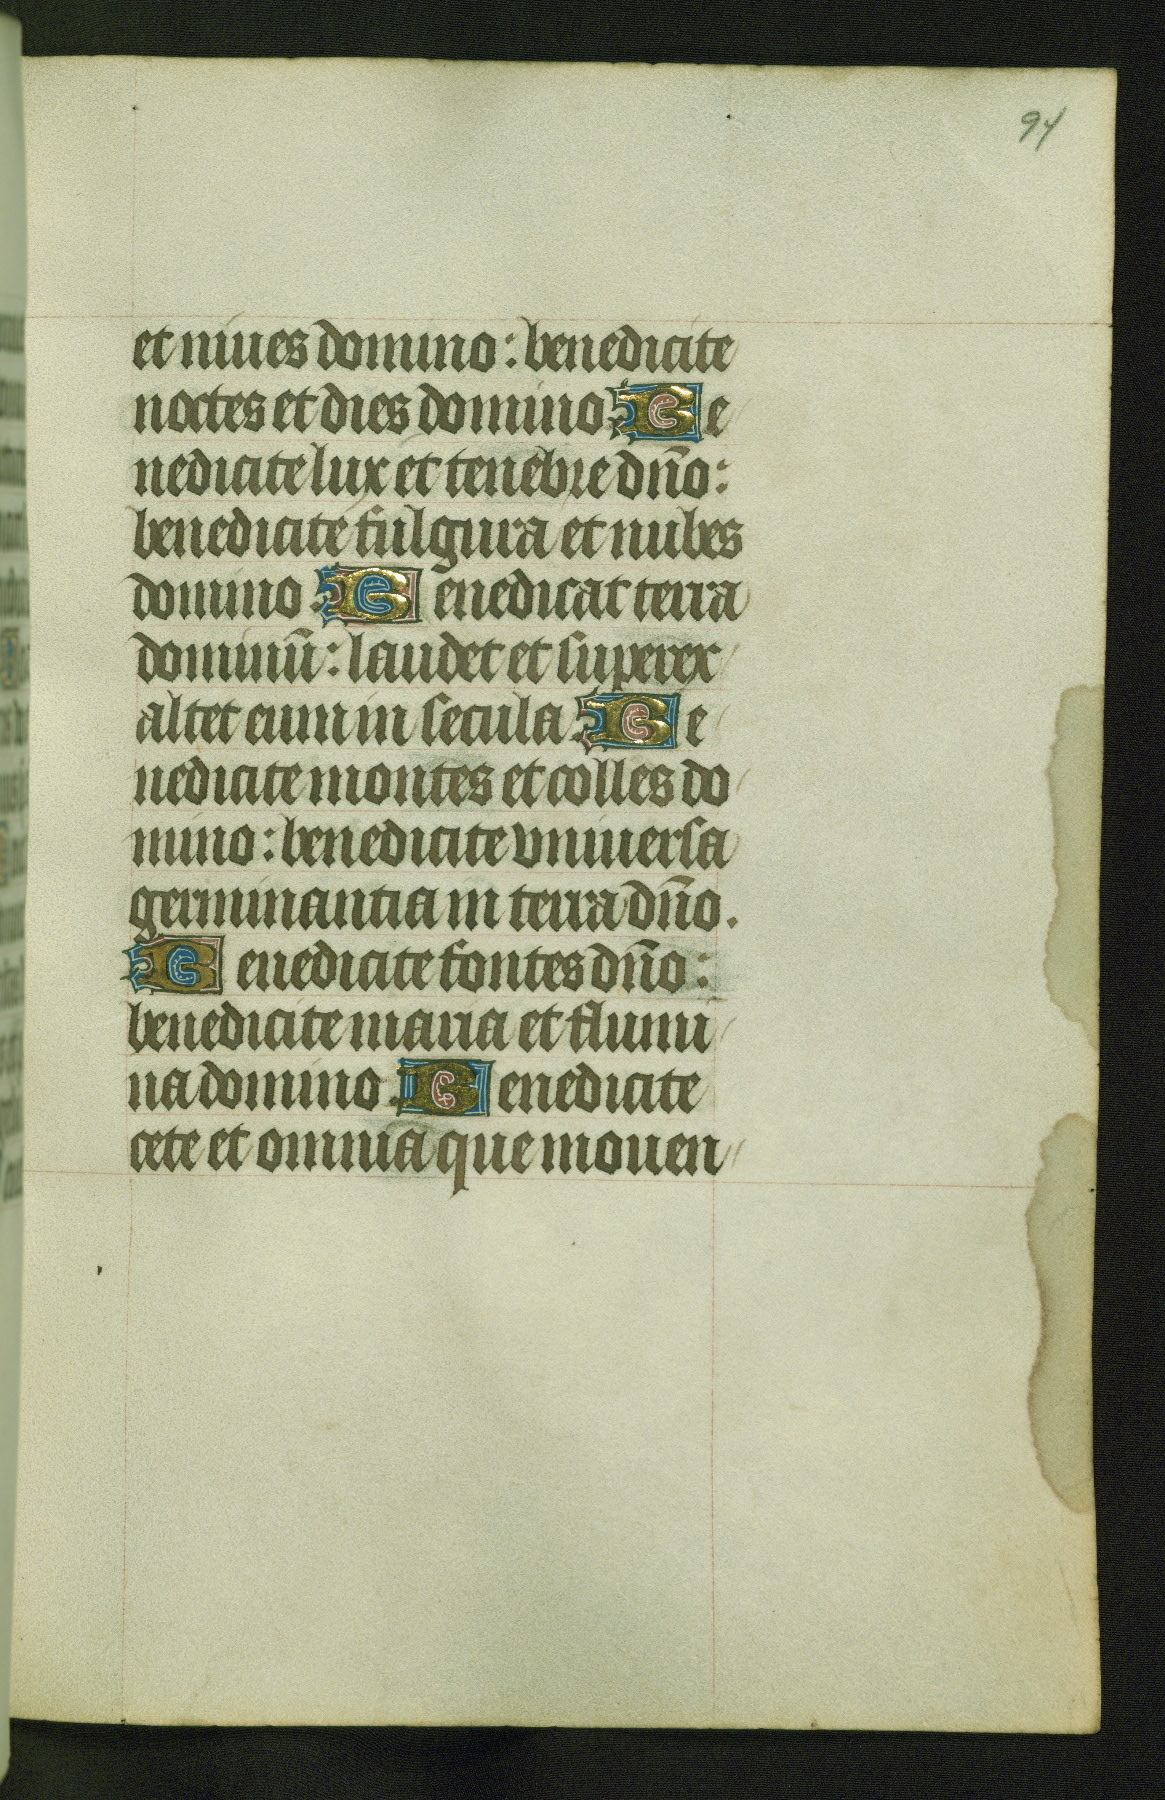 94
et niues domino: benedicite
noctes et dies domino. Be
nedicite lux et tenebre dño:
benedicite fulgura et nubes
domino. Benedicat terra
dominū: laudet et superex
altet eum in secula. Be
nedicite montes et colles do
mino: benedicite vniuersa
germinantia in terra dño.
Benedicite fontes dño:
benedicite maria et flumi
na domino. Benedicite
cete et omnia que mouen